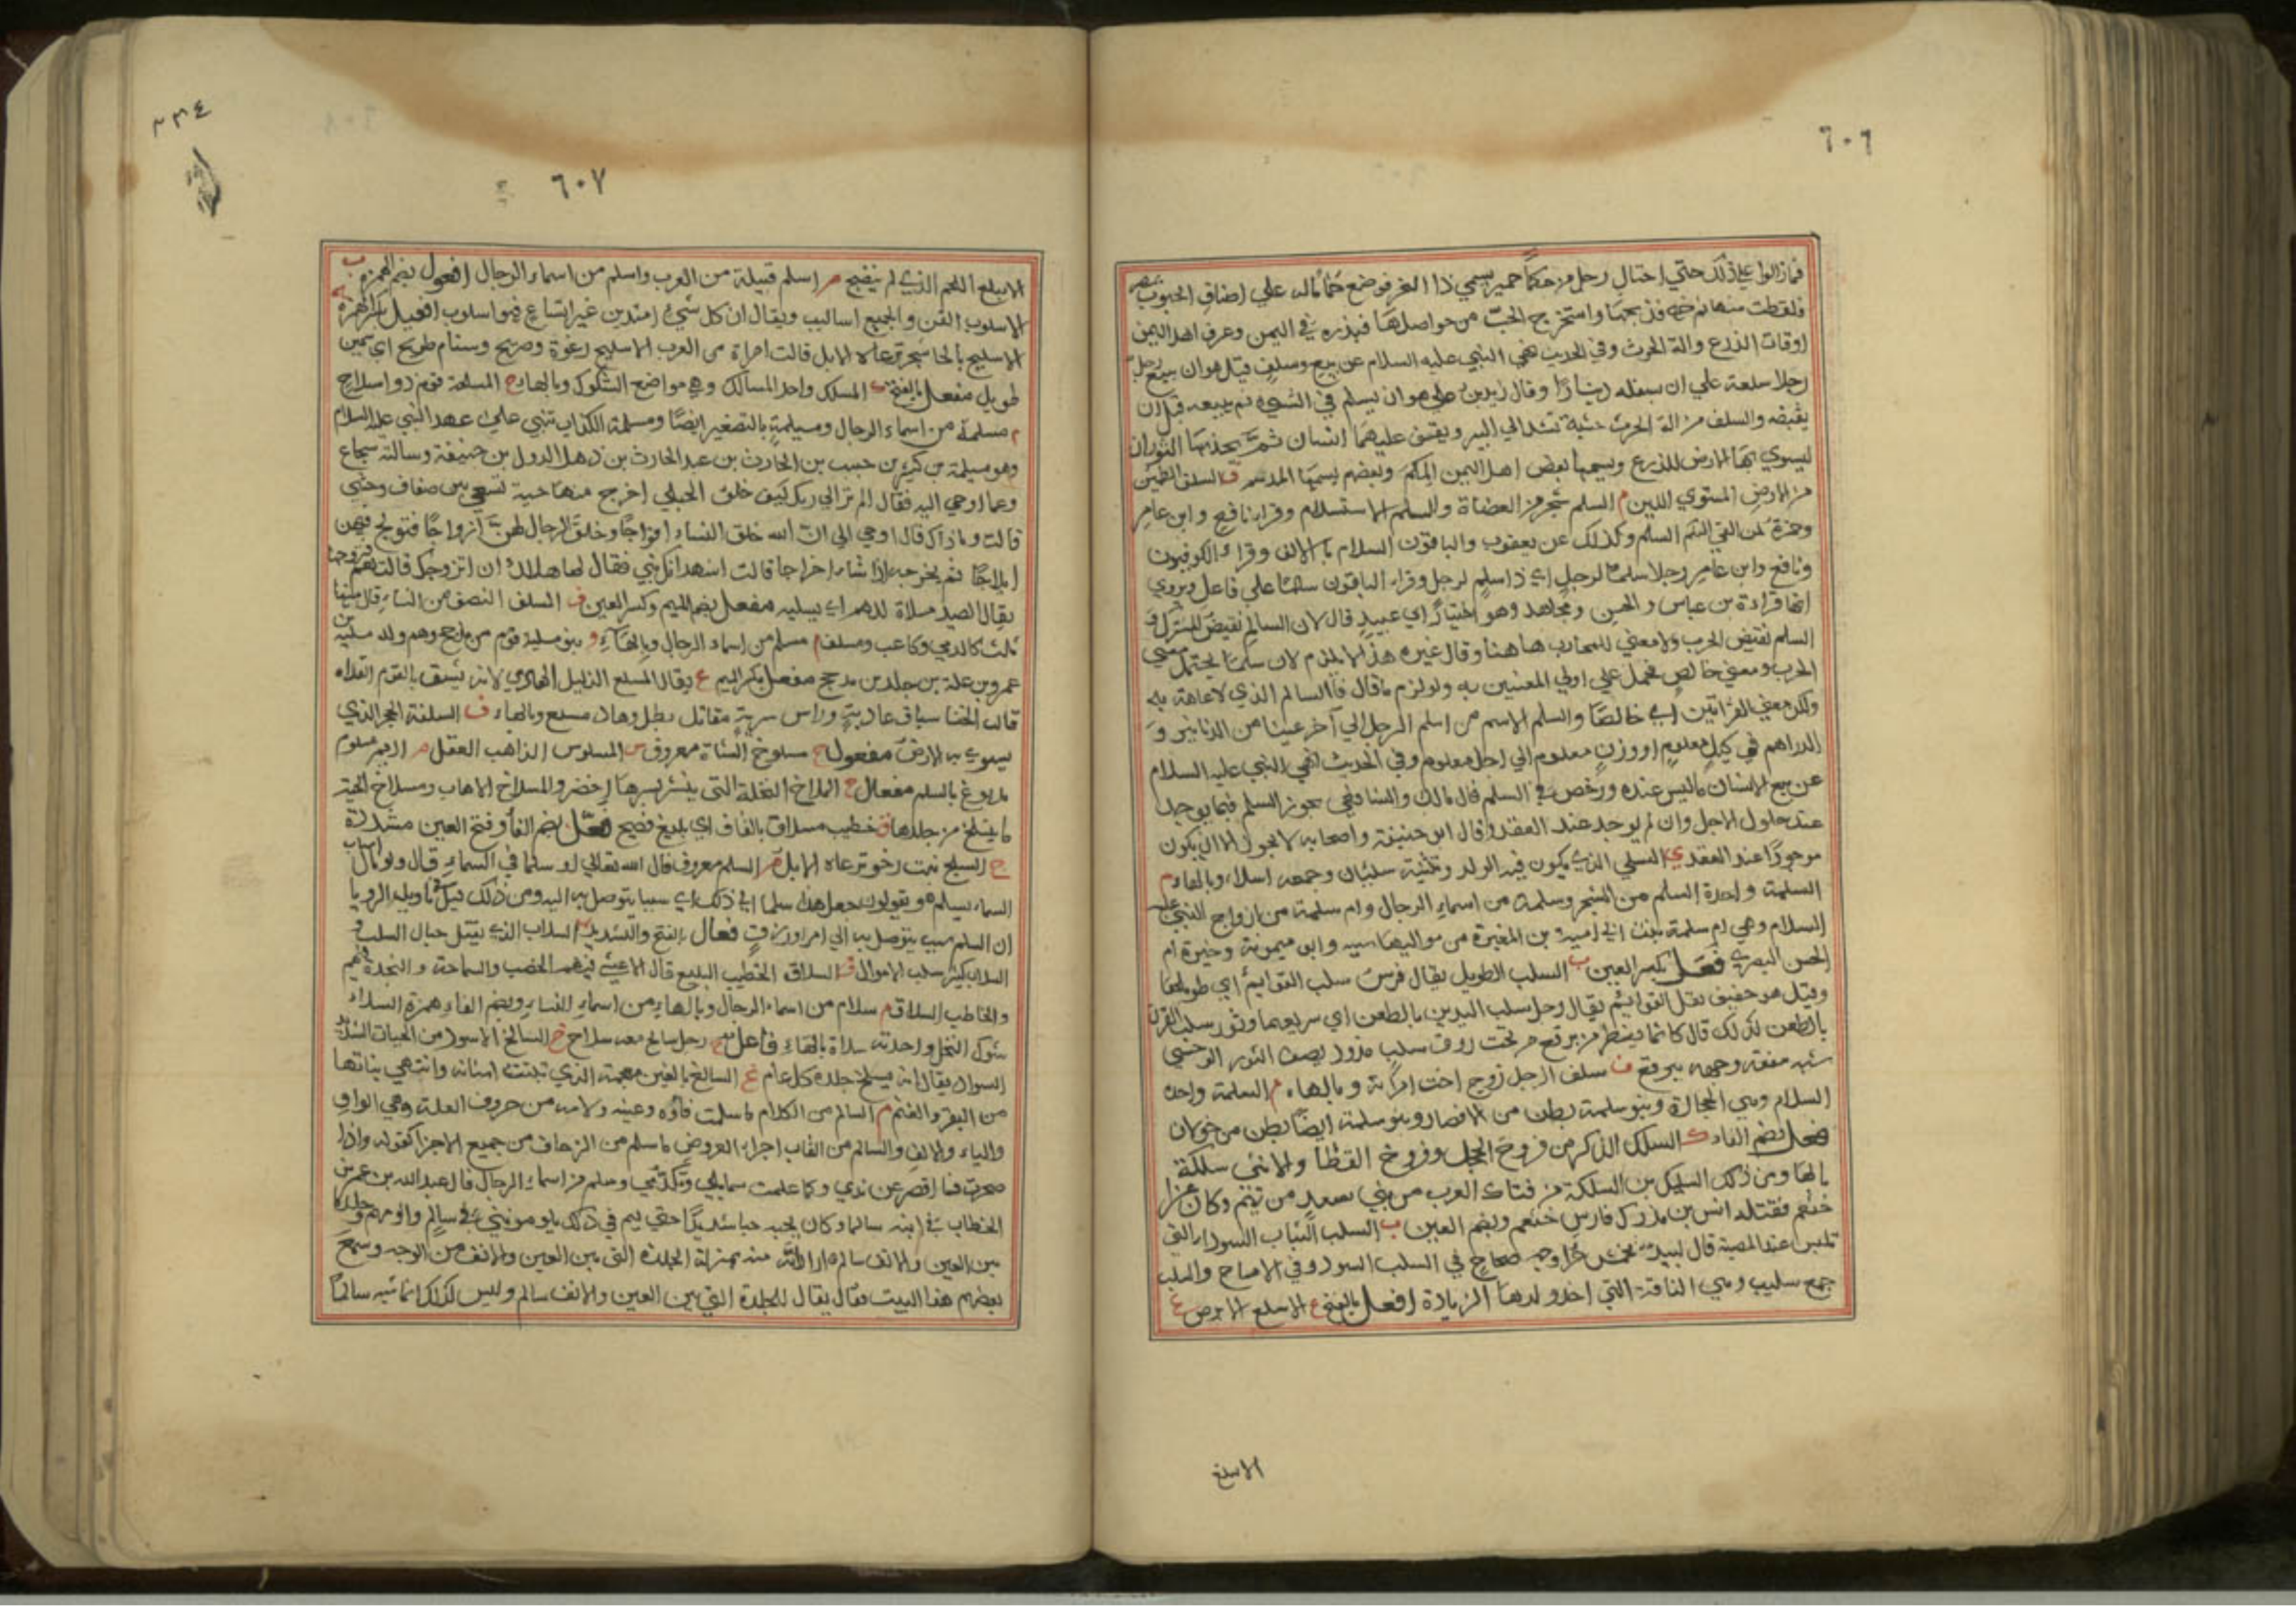 ٦٠٦
فمازالوا علي ذلك حتي احتال رجل من حكما حمير يسمي ذا الغر فوضع حمائم له علي اصناف الحبوب
فلقطت منها ثم فذبحها واستخرج الحب من حواصلها فبذره في اليمن وعرف اهل اليمن
اوقات الذرع والة الحرث وفي الحديث نهي النبي عليه السلام عن بيع وسلف قيل هو ان يبيع رجل
رجلا سلعة علي ان يسلفه دينارًا وقال زيد بن علي هو ان يسلم في الشيء ثم يبيعه قبل ان
يقبضه والسلف من الة الحرث خشبة تشد الي البير ويقف عليها انسان ثم يجذبها الثوران
ليسوي بها الارض للذرع ويسميها بعض اهل اليمن المكم وبعضهم يسميها المدسم ف السلف الطين
من الارض المستوي اللين م السلم شجر من العضاة والسلم الاستسلام وقرا نافع وابن عامر
وحمزة لمن القي اليكم السلم وكذلك عن يعقوب والباقون السلام بالالف وقراء الكوفيون
ونافع وابن عامر رجلا سلمًا لرجل اي ذا سلم لرجل وقراء الباقون سالمًا علي فاعل ويروي
انها قراءة بن عباس والحسن ومجاهد وهو اختيار ابي عبيد قال لان السالم نقيض المشترك و
السلم نقيض الحرب ولا معني للمحارب هاهنا وقال غيره هذا لا يلزم لان سلمًا يحتمل معني
الحرب ومعني خالص فحمل علي اولي المعنيين به ولو لزم ما قال فالسالم الذي لا عاهة به
ولكن معني القراتين اي خالصًا والسلم الاسم من اسلم الرجل الي آخر عينا من الدنانير و
الدراهم في كيل معلوم او وزن معلوم الي اجل معلوم وفي الحديث نهي النبي عليه السلام
عن بيع الانسان ماليس عنده ورخص في السلم قال مالك والشافعي يجوز السلم فيما يوجد
عند حلول الاجل وان لم يوجد عند العقد وقال ابن حنيفة واصحابه لا يجوز الا ان يكون
موجودًا عند العقد ي السلي الذي يكون فيه الولد وتثنية سليان وجمعه اسلاء وبالهاء م
السلمة واحدة السلم من الشجر وسلمة من اسماء الرجال وام سلمة من ازواج النبي عليه
السلام وهي ام سلمة بنت ابي امية بن المغيرة من مواليها شيبه وابن ميمونة وخيرة ام
الحسن البصري فعل بكسر العين ب السلب الطويل يقال فرس سلب القوايم اي طويلها
وقيل هو خفيف نقل القوايم يقال رجل سلب اليدين بالطعن اي سريعهما وثور سلب القرن
بالطعن كذلك قال كانما ينظر من برقع من تحت روق سلب مذود يصف الثور الوحشي
شبه سفعة وجهه ببرقع ف سلف الرجل زوج اخت امراته وبالهاء م السلمة واحدة
السلام وهي الحجارة وبنو سلمة بطن من الانصار وبنو سلمة ايضًا بطن من خولان
فعل بضم الفاء ك السلك الذكر من فروخ الحجل وفروخ القطا والانثي سلكة
بالها ومن ذلك السليك بن السلكة من فتاك العرب من بني سعد من تميم وكان غزا
خثعم فقتله انس بن مدرك فارس خثعم وبضم العين ب السلب الثياب السود التي
تلبس عند المصيبة قال لبيد يخمشن حرا وجه صحاح في السلب السود وفي الامساح والسلب
جمع سليب وهي الناقة التي اخذ ولدها الزيادة افعل بالفتح ع الاسلع الابرص غ
الاسلغ
٢٣٤
٦٠٧
الاسلغ اللحم الذي لم ينضج م اسلم قبيلة من العرب واسلم من اسماء الرجال افعول بضم الهمزة ب
الاسلوب الفن والجميع اساليب ويقال ان كل شيء امتد من غير اتساع فهو اسلوب افعيل بكسر الهمزة ح
الاسليح بالحا شجر ترعاه الابل قالت امراة من العرب الاسليح رغوة وصريح وسنام طريح اي سمين
طويل مفعل بالفتح ك المسلك واحد المسالك وهي مواضع السلوك وبالهاء ح المسلحة قوم ذو اسلاح
م مسلمة من اسماء الرجال ومسيلمة بالتصغير ايضًا ومسيلمة الكذاب تنبي علي عهد النبي عليه السلام
وهو مسيلمة بن كبير بن حبيب بن الحارث بن عبد الحارث بن ذهل الدول بن حنيفة وسالته سجاح
وعما اوحي اليه فقال الم تر الي ربك كيف خلق الحبلي اخرج منها حية تسعي بين صفاق وحشي
قالت وماذا ك قال اوحي الي ان الله خلق النساء افراجًا وخلق الرجال لهن ازواجًا فتولج فيهن
ايلاجًا ثم يخرجه اذا شاء اخراجا قالت اشهد انك نبي فقال لها هل لك ان اتزوجك قالت نعم فتزوجها
يقال الصيد مسلاة للهم اي يسليه مفعل بضم الميم وكسر العين ف المسلف النصف من النساء قال فيها
ثلث كالدمي وكاعب ومسلف م مسلم من اسماء الرجال وبالهاء و بنو مسلية قوم من مذحج وهم ولد مسلية بن
عمرو بن علة بن جلد بن مذحج مفعل بكسر الميم ع يقال المسلع الدليل الهادي لانه يشق بالقوم الفلاه
قالت الخنسا سباق عادية وراس سرية مقاتل بطل وهاد مسلع وبالهاء ف السلفة الحجر الذي
يسوي به الارض مفعول خ مسلوخ الشاة معروف س المسلوس الذاهب العقل م اديم مسلوم
مدبوغ بالسلم مفعال خ المسلاخ النخلة التي ينتثر بسرها اخضر والمسلاخ الاهاب ومسلاخ الحية
ما ينسلخ من جلدها ق خطيب مسلاق بالقاف اي بليغ فصيح فعل بضم الفا وفتح العين مشددة
ج السلج نبت رخو ترعاه الابل م السلم معروف قال الله تعالي او سلما في السماء قال ولو نال اسباب
السماء بسلم هو يقولون جعل هذا سلما الي ذلك اي سببا يتوصل به اليه ومن ذلك قيل في تاويل الرويا
ان السلم سبب يتوصل به الي امر او رزق فعال بالفتح والتشديد ب السلاب الذي يفتل حبال السلب و
السلاب كثير سلب الاموال ق السلاق الخطيب البليغ قال الاعشي فيهم الخصب والسماحة والنجدة فيهم
والخاطب السلاق م سلام من اسماء الرجال وبالهاء من اسماء النساء وبضم الفاء همزة السلاء
شوك النخل واحدته سلاة بالهاء فاعل ح رجل سالح معه سلاح خ السالخ الاسود من الحيات الشديد
السواد يقال انه يسلخ جلده كل عام غ السالغ بالغين معجمة الذي تبتت اسنانه وانتهي بناتها
من البقر والغنم م السالم من الكلام ما سلمت فاؤه وعينه ولامه من حروف العلة وهي الواو
والياء والالف والسالم من القاب اجزاء العروض ما سلم من الزحاف من جميع الاجزا كقوله واذا
صحوت فما اقصر عن ندي وكما علمت شمايلي وتكرمي وسلم من اسماء الرجال قال عبدالله بن عمر بن
الخطاب في ابنه سالما وكان يحبه حبا شديدًا حتي ليم في ذلك يلومونني في سالم والومهم وجلدة
بين العين والانف سالم اراد انه منه بمنزلة الجلدة التي بين العين والانف من الوجه وسمع
بعضهم هذا البيت فقال يقال للجلدة التي بين العين والانف سالم وليس كذلك انما شبه سالمًا